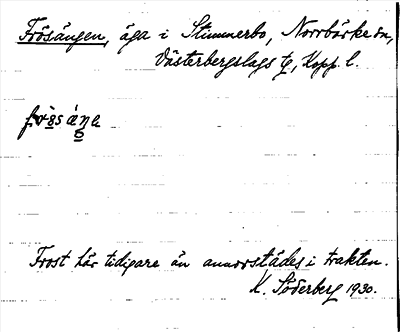 Frösängen, äga i Stimmerbo, Norrbärke sn,
Västerbergslags tg, Kopp. l.
Frost här tidigare än annorstädes i trakten.
K. Söderberg 1930.